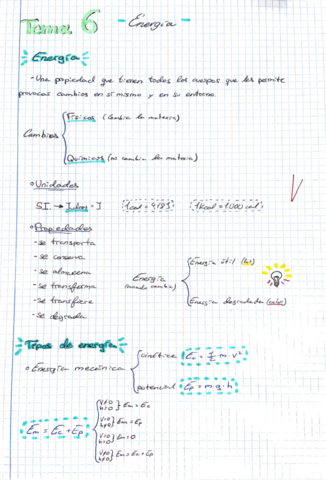 Tema 6 - Energía -
Energía
- Una propiedad que tienen todos los cuerpos que les permite
provocar cambios en sí mismo y en su entorno.
Cambios
Físicos (cambia la materia)
Químicos (no cambia la materia)
Unidades
S.I. → Julios - J
1 cal = 4'18 J
1 Kcal = 1000 cal
Propiedades
- se transporta
- se conserva
- se almacena
- se transforma
- se transfiere
- se degrada
Energía
(cuando cambia)
Energía útil (luz)
Energía degradada (calor)
Tipos de energía
Energía mecánica
cinética Ec = ½ m v²
potencial Ep = m · g · h
Em = Ec + Ep
v≠0
h=0 } Em = Ec
v=0
h≠0 } Em = Ep
v=0
h=0 } Em = 0
v≠0
h≠0 } Em = Ec + Ep